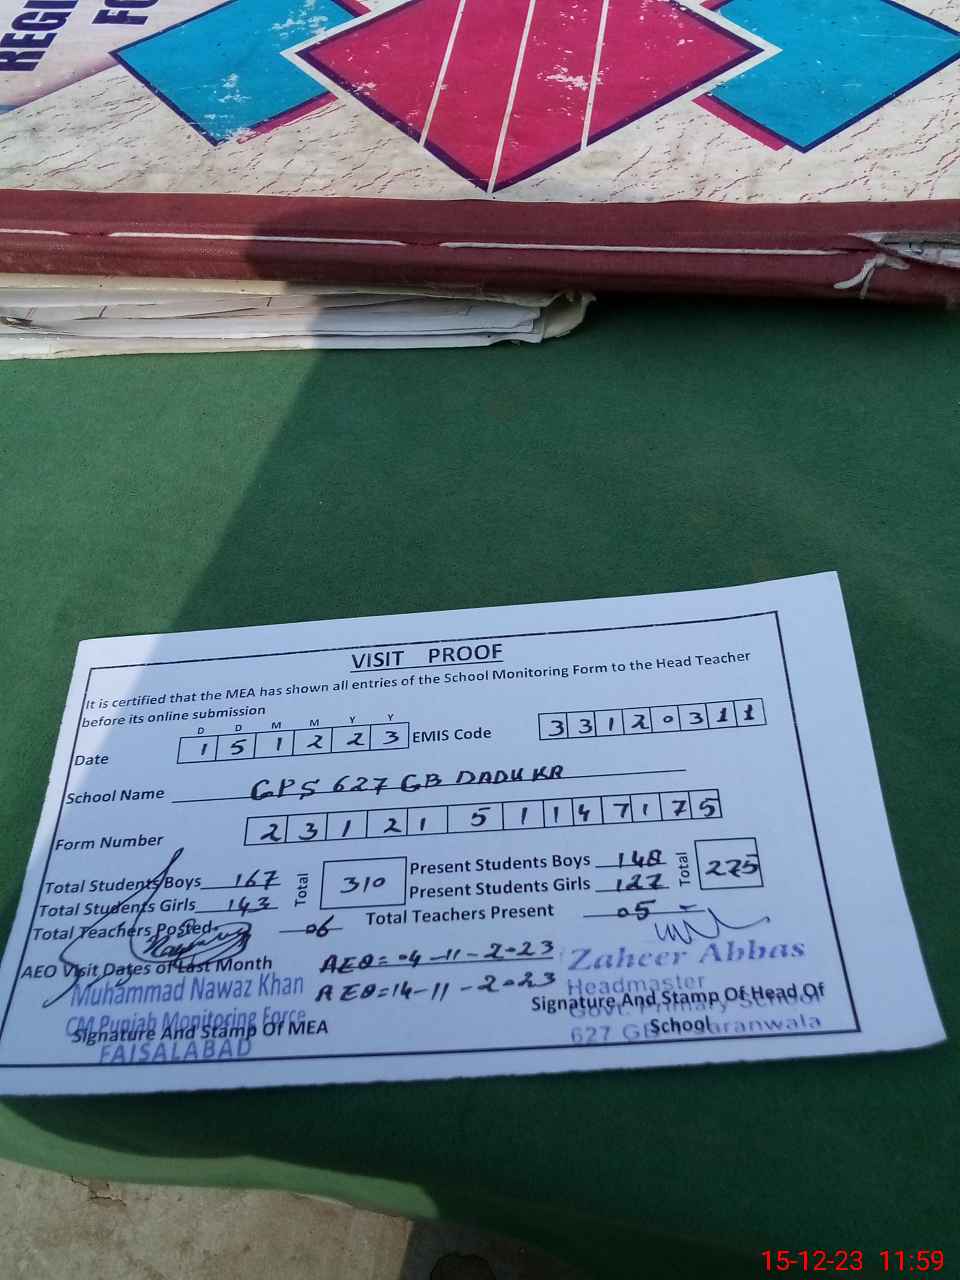 REGI
FO
VISIT PROOF
It is certified that the MEA has shown all entries of the School Monitoring Form to the Head Teacher
before its online submission
D D M M Y Y
Date 1 5 1 2 2 3 EMIS Code 3 3 1 2 0 3 1 1
School Name GPS 627 GB DADUKR
Form Number 2 3 1 2 1 5 1 1 4 7 1 7 5
Total Students Boys 167 Total 310 Present Students Boys 148 Total 275
Total Students Girls 143 Present Students Girls 127
Total Teachers Posted 06 Total Teachers Present 05
AEO Visit Dates of Last Month AEO=04-11-2023
AEO=14-11-2023
Muhammad Nawaz Khan
CM Punjab Monitoring Force
FAISALABAD
Signature And Stamp Of MEA
Zaheer Abbas
Headmaster
Govt. Primary School
627 GB Jaranwala
Signature And Stamp Of Head Of
School
15-12-23 11:59